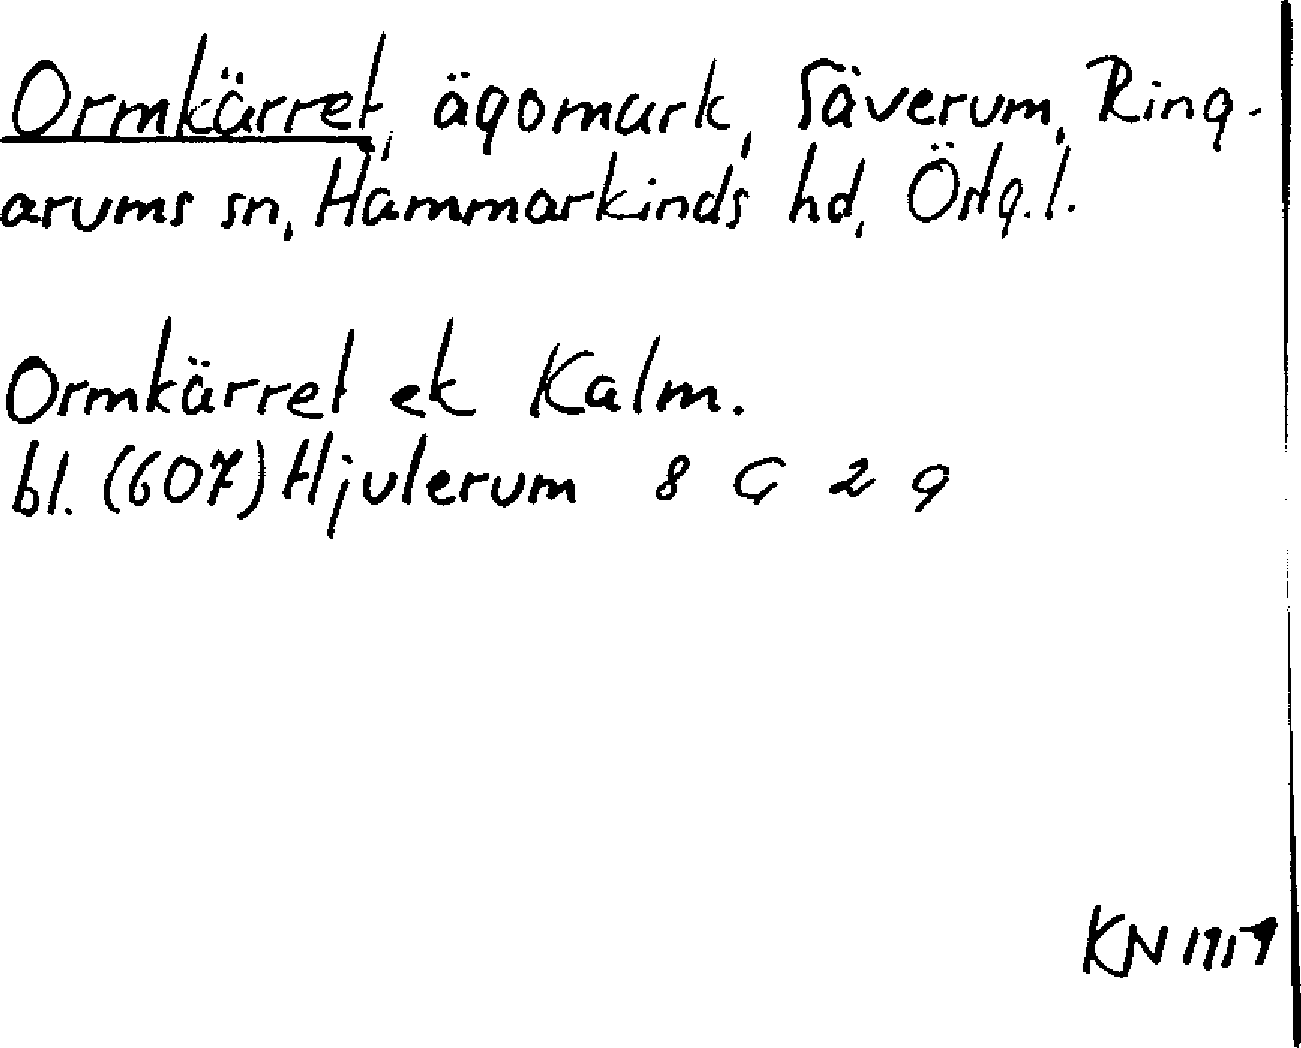 Ormkärret, ägomark, Säverum, Ring-
arums sn, Hammarkinds hd, Östg.l.
Ormkärret ek Kalm.
bl. (607) Hjulerum 8 G 2 g
KN